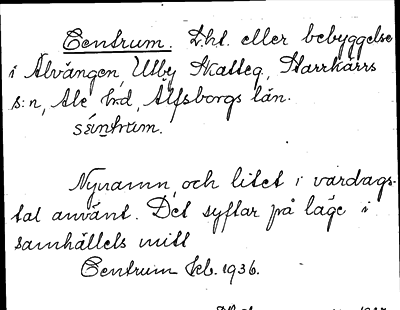 Centrum. Lht. eller bebyggelse
i Älvängen, Utby Skatteg., Starrkärrs
s:n, Ale hrd, Älfsborgs län.
séntrum.
Nynamn och litet i vardags-
tal använt. Det syftar på läge i
samhällets mitt
Centrum Ekb. 1936.